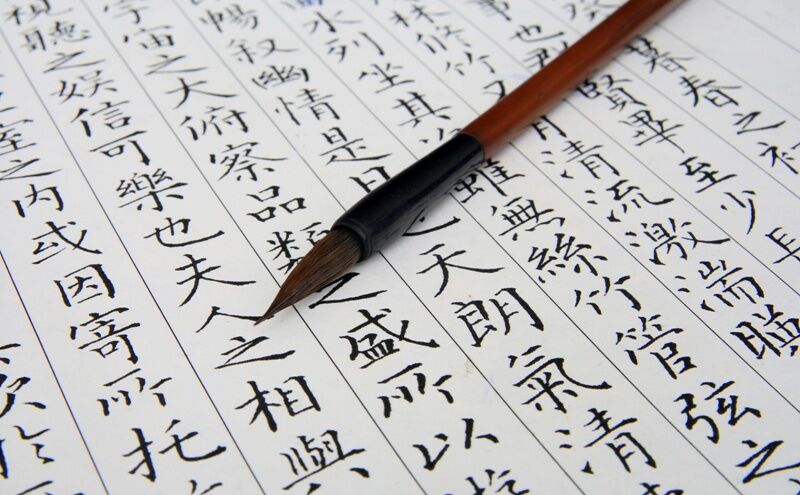 癸暮春之初
也群賢畢至少長
林修竹又有清流激湍暎
水列坐其次雖無絲竹管弦之
暢叙幽情是日也天朗氣清
宇宙之大俯察品類之盛所以
視聽之娛信可樂也夫人之相與
室之內或因寄所托
於